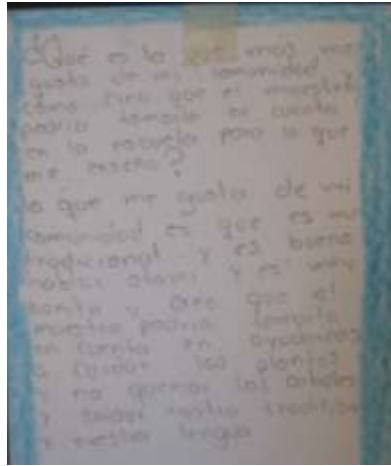 ¿Qué es lo que más me
gusta de mi comunidad,
cómo creo que el maestro
podría tomarlo en cuenta
en la escuela para lo que
me enseña?
lo que me gusta de mi
comunidad es que es muy
tradicional y es bueno
hablar otomi y es muy
bonito y creo que el
maestro podria tomarlo
en cuenta en ayudarnos
a cuidar las plantas
y no quemar los arboles
y cuidar nuestra tradition
y nuestra lengua